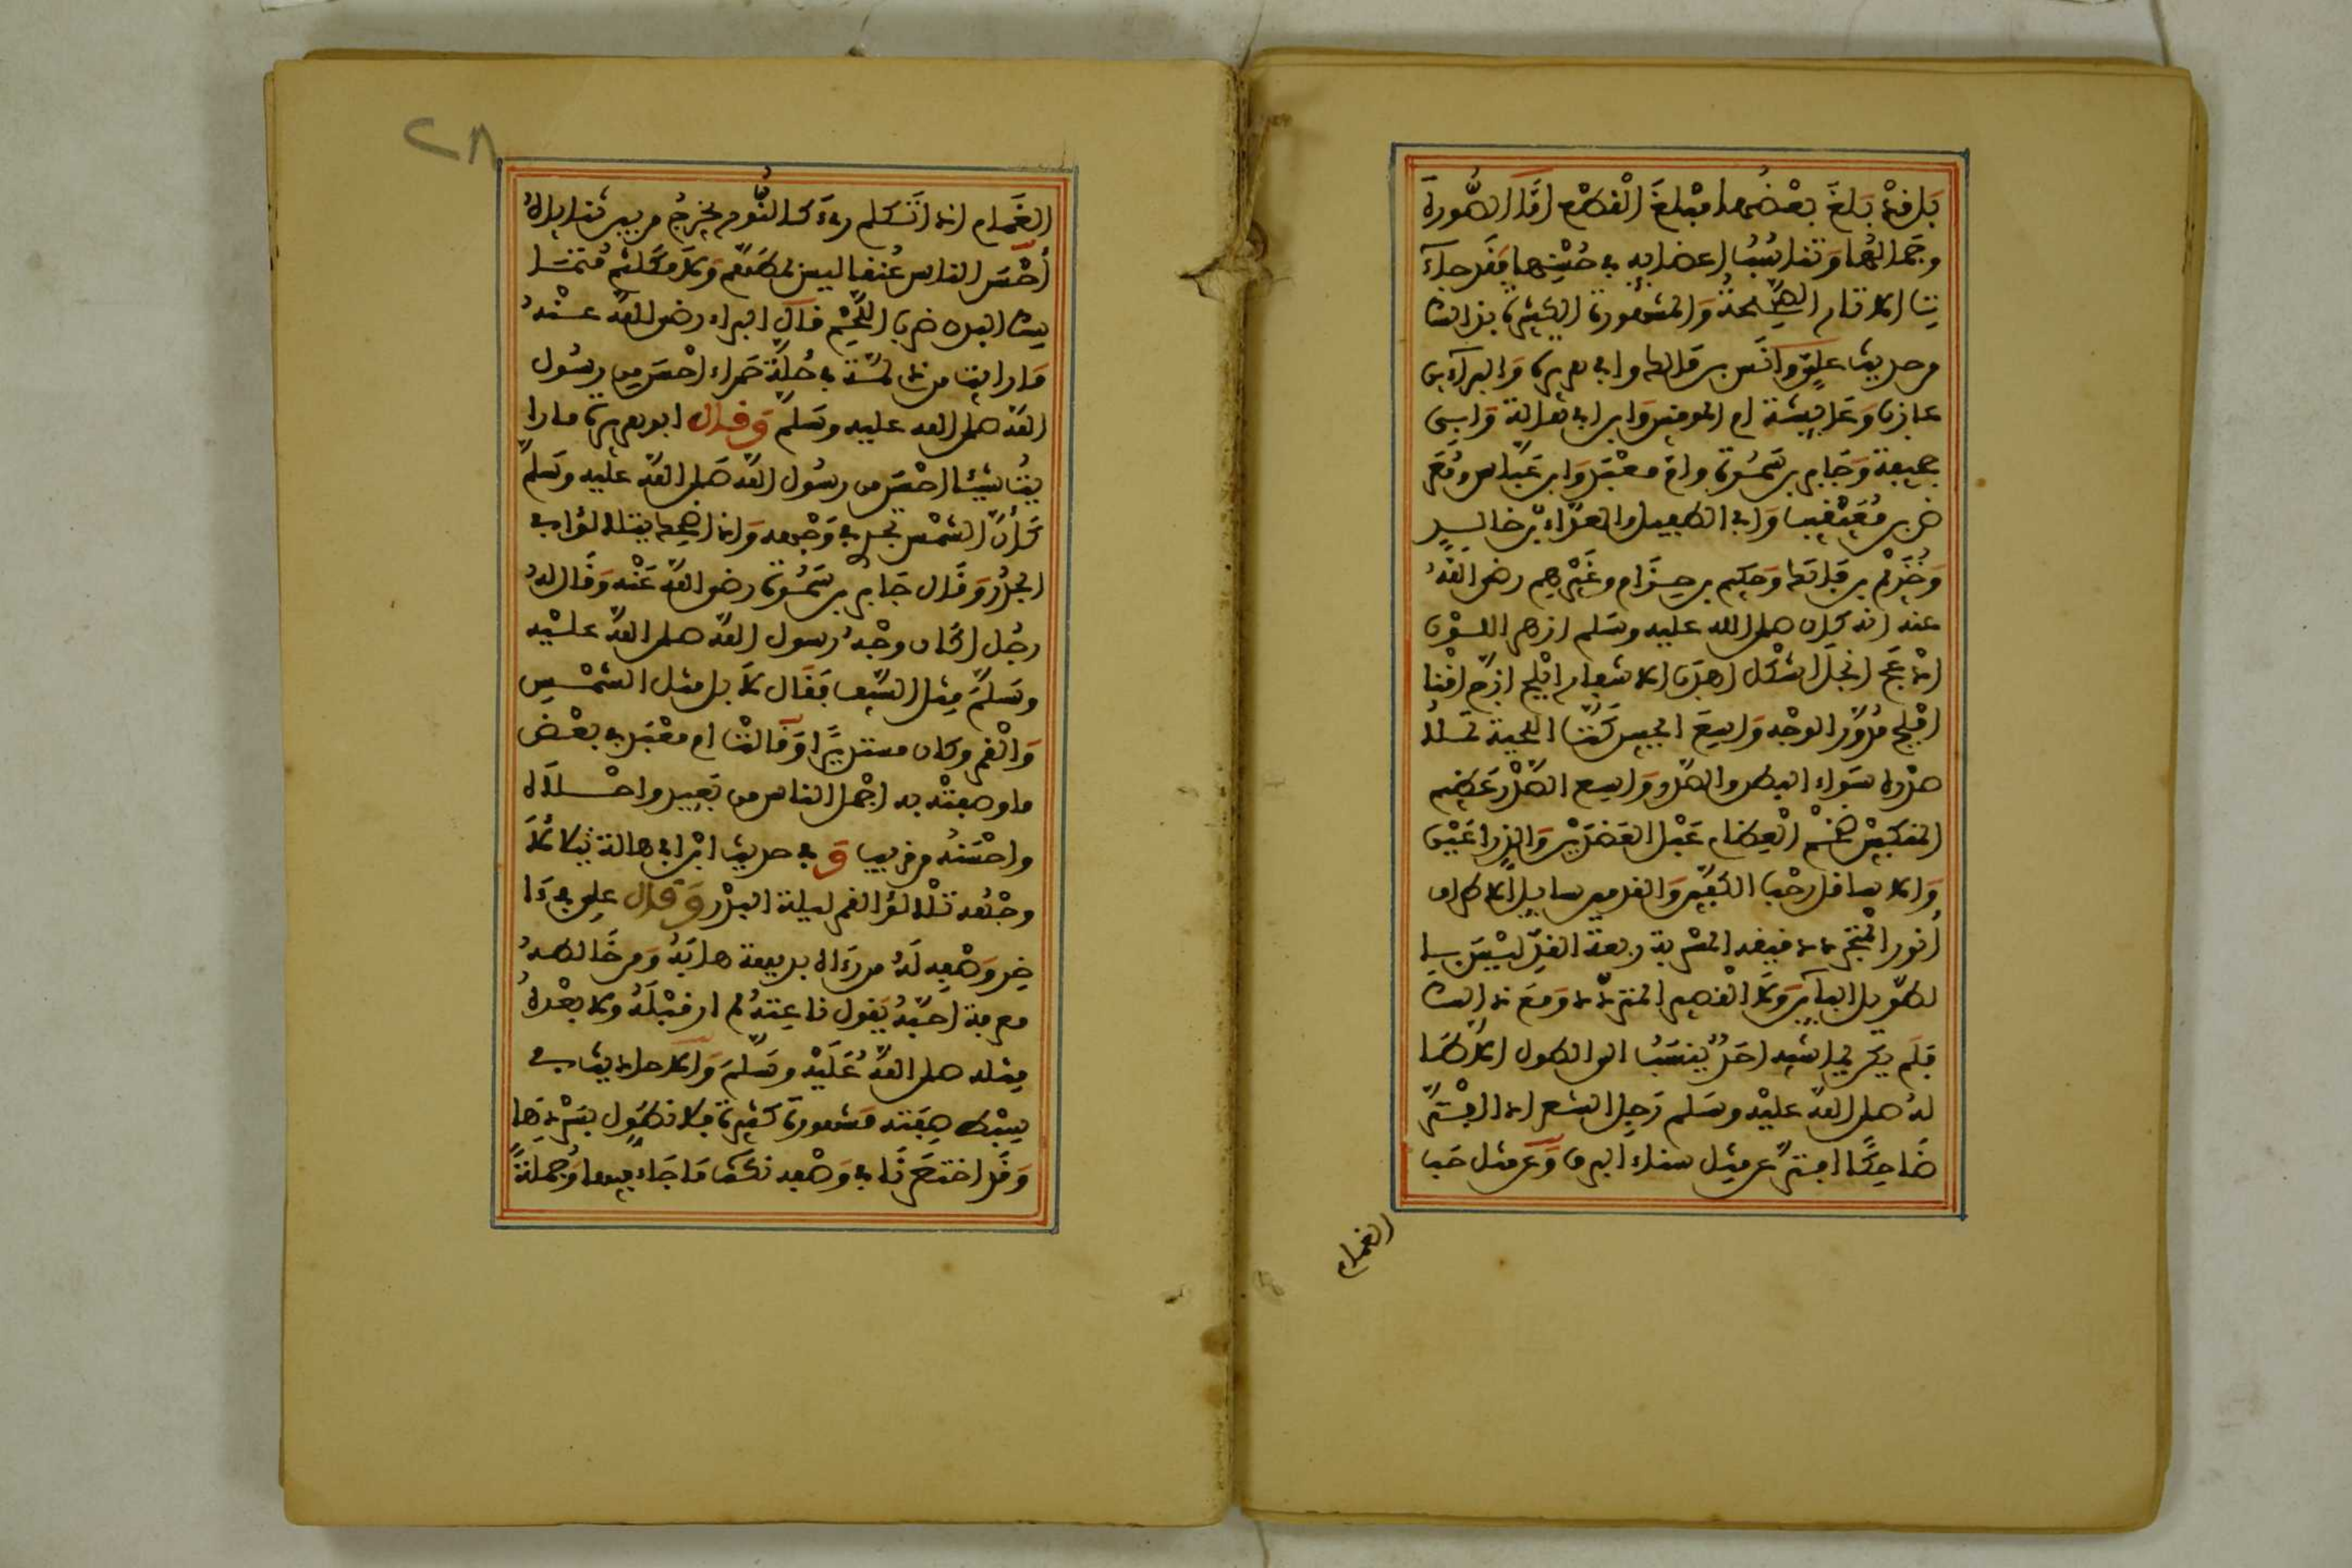 بل قد بلغ بعضها مبلغ القطع اما الصورة
وجمالها وتناسب اعضايه في حسنها فقد جاء
ت الاثار الصحيحة والمشهورة الكثيرة بذالك
من حديث علي وانس بن مالك وابي هريرة والبراء بن
عازب وعائيشة ام المومنين وابن ابي هالة وابي
جحيفة وجابر بن سمرة وام معبد وابن عباس ومعر
ض بن معيقيب وابي الطفيل والعداء بن خالد
وخريم بن فاتك وحكيم بن حزام وغيرهم رضي الله
عنه انه كان صلى الله عليه وسلم ازهر اللون
ادعج انجل اشكل اهدب الاشفار ابلج ازج اقنا
افلج مدور الوجه واسع الجبين كث اللحية تملا
صدره سواء البطن والصدر واسع الصدر عظيم
المنكبين ضخم العظام عبل العضدين والذراعين
والاسافل رحب الكفين والقدمين سايل الاطراف
انور المتجرد دقيق المسربة ربعة القد ليس با
لطويل البائن ولا القصير المتردد ومع ذالك
فلم يكن يماشيه احد ينسب الى الطول الا طا
له صلى الله عليه وسلم رجل الشعر اذا افتر
ضاحكا افتر عن مثل سناء البرق وعن مثل حب
الغمام
٢٨
الغمام اذا تكلم رءي كالنور يخرج من بين ثناياه
احسن الناس عنقا ليس بمطهم ولا مكلثم متما
سك البدن ضرب اللحم قال البراء رضي الله عنه
ما رايت من ذي لمة في حلة حمراء احسن من رسول
الله صلى الله عليه وسلم وقال ابو هريرة ما را
يت شيئا احسن من رسول الله صلى الله عليه وسلم
كأن الشمس تجري في وجهه واذا ضحك يتلالؤا في
الجدر وقال جابر بن سمرة رضي الله عنه وقال له
رجل اكان وجه رسول الله صلى الله عليه
وسلم مثل السيف فقال لا بل مثل الشمس
والقمر وكان مستديرا وقالت ام معبد في بعض
ما وصفته به اجمل الناس من بعيد واحلاه
واحسنه من قريب و في حديث ابن ابي هالة يتلالا
وجهه تلالؤ القمر ليلة البدر وقال علي في ءا
خر وصفه له من رءاه بديهة هابه ومن خالطه
معرفة احبه يقول ناعته لم ار قبله ولا بعده
مثله صلى الله عليه وسلم والاحاديث في
بسط صفته مشهورة كثيرة فلا نطول بسردها
وقد اختصرنا في وصفه نكت ما جاء فيها وجملة